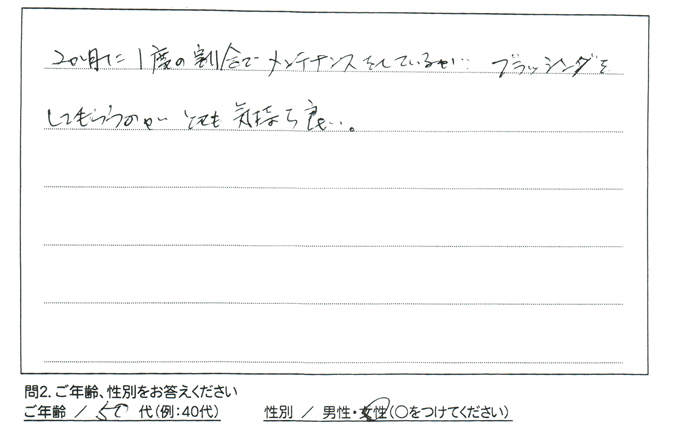 2か月に1度の割合でメンテナンスをしているが、ブラッシングを
してもらうのがとても気持ち良い。
問2. ご年齢、性別をお答えください
ご年齢 / 50 代(例:40代) 性別 / 男性・女性(○をつけてください)